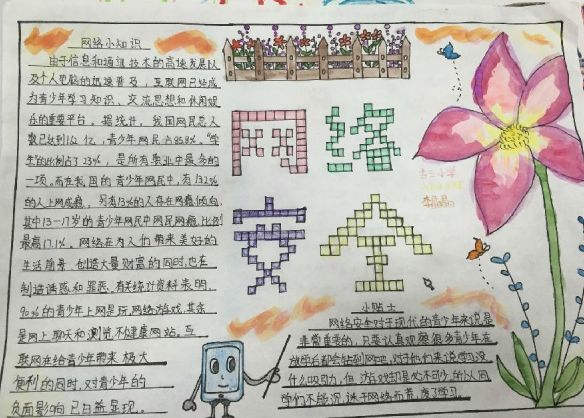 网络小知识
由于信息和通信技术的高速发展以
及个人电脑的迅速普及，互联网已经成
为青少年学习知识、交流思想和休闲娱
乐的重要平台。据统计，我国网民总人
数已达到1.2亿，青少年网民占85.8%。"学
生"的比例占了23%，是所有职业中最多的
一项。而在我国的青少年网民中，有13.2%
的人上网成瘾，另有13%的人存在网瘾倾向，
其中13-17岁的青少年网民中网民网瘾比例
最高17.1%。网络在为人们带来美好的
生活前景，创造大量财富的同时，也在
制造诱惑和罪恶。有关统计资料表明，
90%的青少年上网是玩网络游戏，其余
是网上聊天和浏览不健康网站。互
联网在给青少年带来极大
便利的同时，对青少年的
负面影响已日益显现。
网络
安全
小贴士
网络安全对于现代的青少年来说是
非常重要的，只要认真观察，很多青少年在
放学后都会钻到网吧，对于他们来说学习没
什么吸引力，但游戏却是必不可少，所以同
学们不能沉迷于网络而荒废了学习。